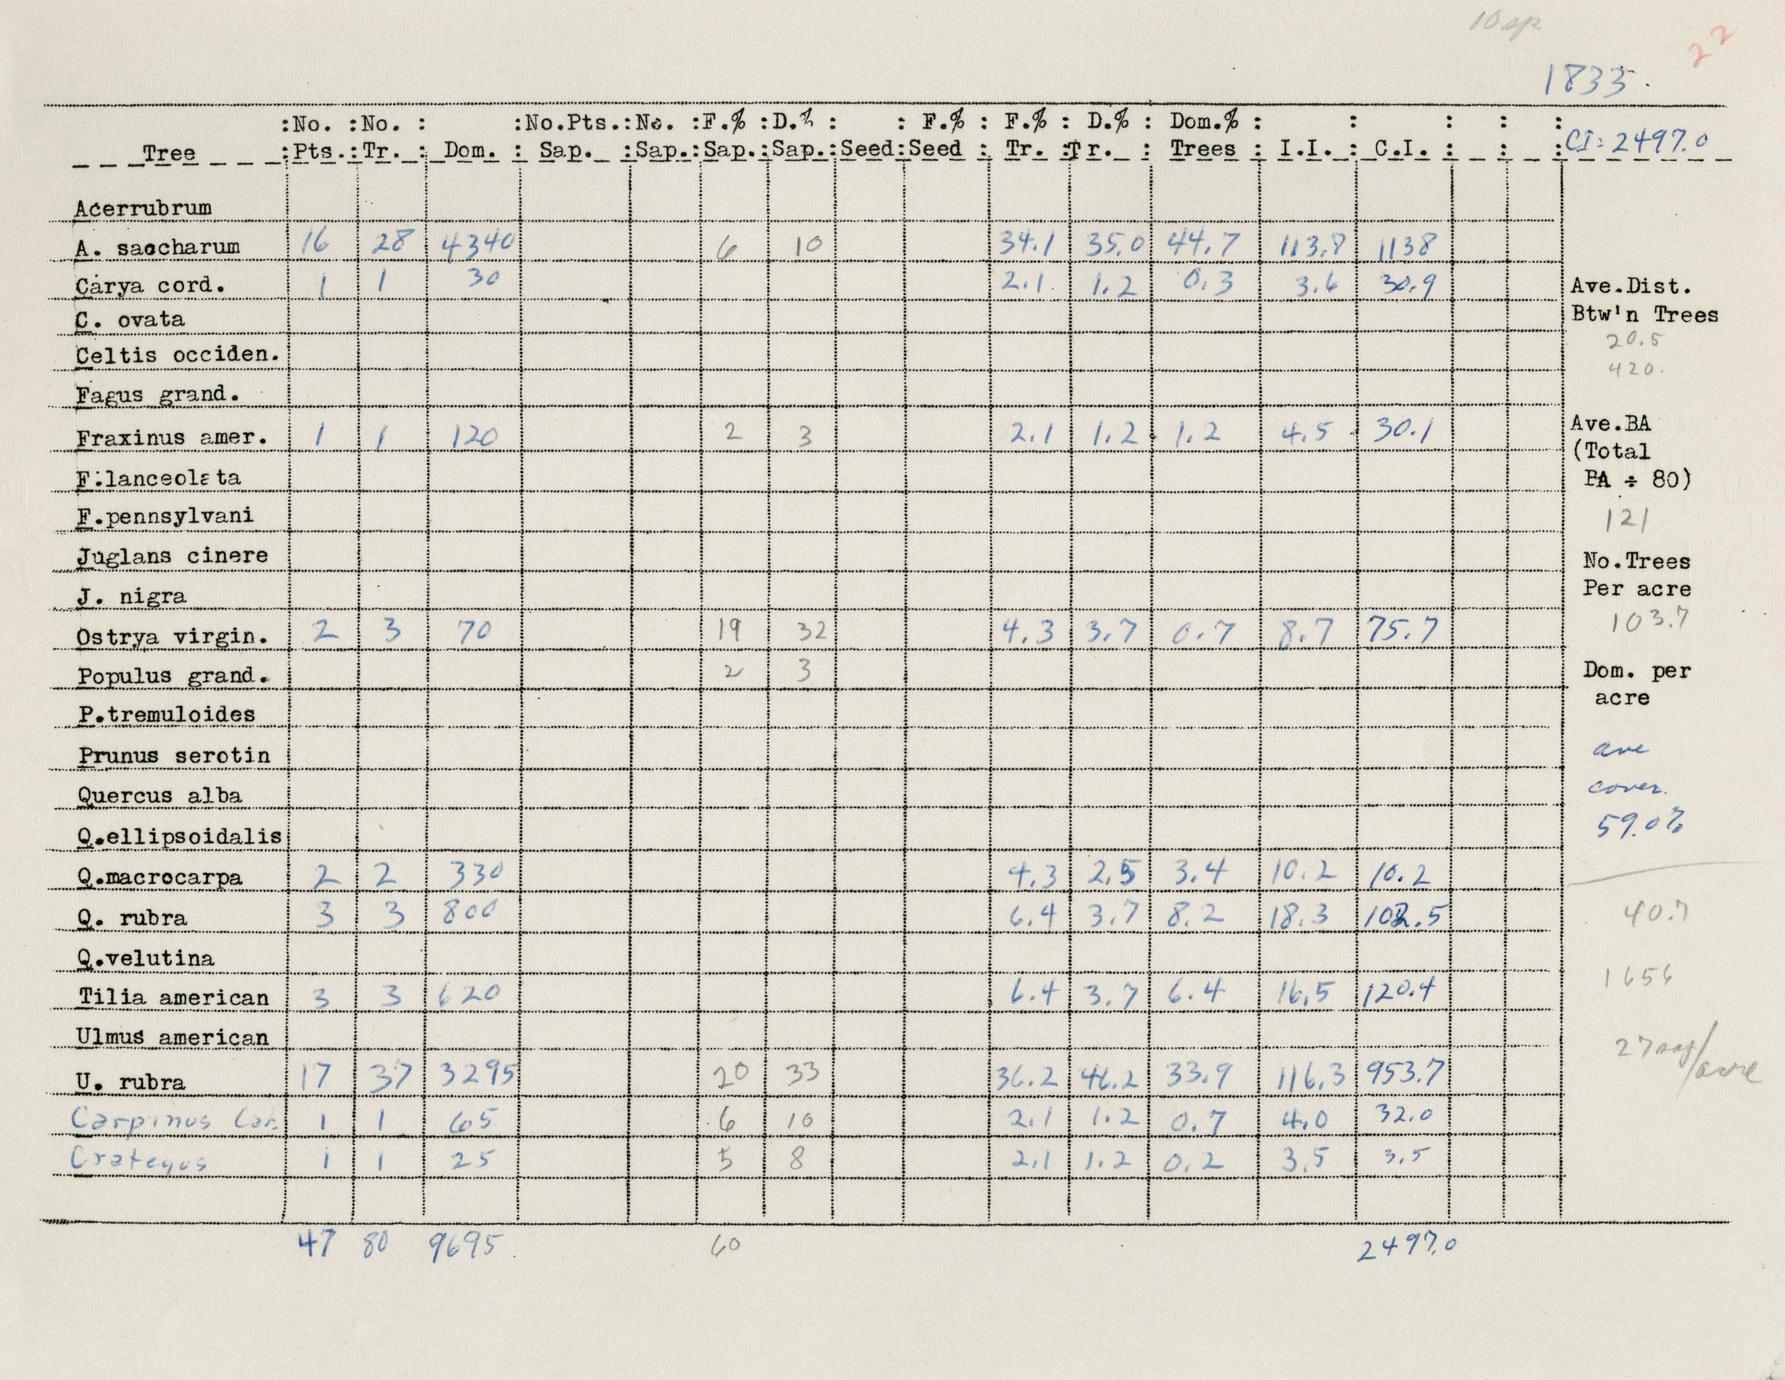 10 sp.
22
1833.
:No. :No. : :No.Pts.:No. :F.% :D.% : : F.% : F.% : D.% : Dom.% : : : : :
Tree :Pts.:Tr. : Dom. : Sap. :Sap.:Sap.:Sap.:Seed:Seed : Tr. :Tr. : Trees : I.I. : C.I. : : :CI: 2497.0
Acerrubrum
A. saccharum 16 28 4340 6 10 34.1 35.0 44.7 113.8 1138
Carya cord. 1 1 30 2.1 1.2 0.3 3.6 30.9
Ave.Dist.
C. ovata
Btw'n Trees
20.5
Celtis occiden.
420.
Fagus grand.
Fraxinus amer. 1 1 120 2 3 2.1 1.2 1.2 4.5 30.1
Ave.BA
(Total
F.lanceolata
BA ÷ 80)
F.pennsylvani
121
Juglans cinere
No.Trees
J. nigra
Per acre
Ostrya virgin. 2 3 70 19 32 4.3 3.7 0.7 8.7 75.7
103.7
Populus grand. 2 3
Dom. per
acre
P.tremuloides
Prunus serotin
ave
Quercus alba
cover.
Q.ellipsoidalis
59.0%
Q.macrocarpa 2 2 330 4.3 2.5 3.4 10.2 10.2
Q. rubra 3 3 800 6.4 3.7 8.2 18.3 102.5
40.7
Q.velutina
Tilia american 3 3 620 6.4 3.7 6.4 16.5 120.4
1656
Ulmus american
U. rubra 17 37 3295 20 33 36.2 46.2 33.9 116.3 953.7
27 /acre
Carpinus Car. 1 1 65 6 10 2.1 1.2 0.7 4.0 32.0
Crategus 1 1 25 5 8 2.1 1.2 0.2 3.5 3.5
47 80 9695 60 2497.0